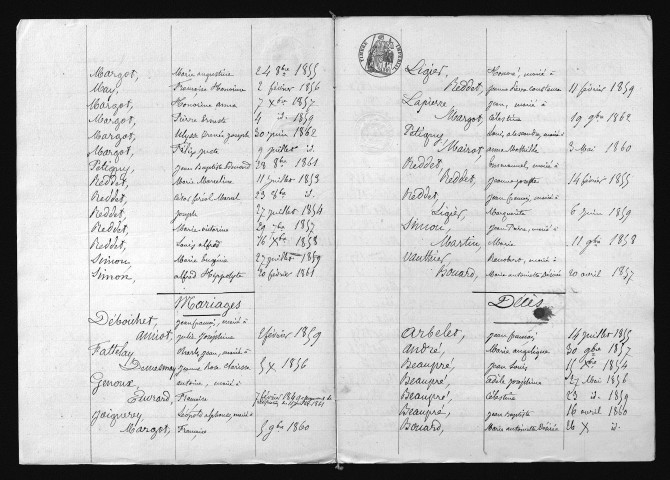 Margot, Marie augustine 24 8bre 1855
Mai, Françoise Honorine 2 février 1856
Margot, Honorine anna 7 Xbre 1857
Margot, Pierre 4 id. 1859
Margot, Ulysse Joseph 30 juin 1862
Margot, Félix juste 9 juillet id.
Petigny, jean Baptiste Edouard 28 8bre 1861
Reddet, Marie Marceline 11 juillet 1853
Reddet, 23 8bre id.
Reddet, joseph 27 juillet 1854
Reddet, Marie victorine 29 9bre 1857
Reddet, Louis alfred 16 Xbre 1858
Simon, Marie Eugénie 27 juillet 1859
Simon, alfred Hippolyte 20 février 1861
Mariages
Débouchet, jean françois, marié à
amiot, julie joséphine février 1859
Fattelay, Charles jean, marié à
jeanne Rose 5 X 1856
Genoux, antoine, marié à
Euvrard, Françoise 7 février
jaiguerey, Léopold alphonse, marié à
Margot, Françoise 5 9bre 1860
TIMBRE IMPERIAL
Ligier, Honoré, marié à
Reddet, jeanne 11 février 1859
Lapierre, jean, marié à
Margot, Célestine 19 9bre 1862
Petigny, Louis alexandre, marié à
Mairot, anne Mathilde 3 Mai 1860
Reddet, Emmanuel, marié à
Reddet, jeanne josephte 14 février 1855
Reddet, jean françois, marié à
Ligier, Marguerite 6 juin 1859
Simon, jean Pierre, marié à
Martin, Marie 11 9bre 1858
Vauthier, marié à
Bouard, Marie antoinette Désirée 20 avril 1857
Décès
Arbelet, jean françois, 14 juillet 1855
andré, Marie angélique 30 9bre 1857
Beaupré, jean Louis 15 Xbre 1854
Beaupré, Edile joséphine 27 Mai 1856
Beaupré, Célestine 23 id. 1859
Beaupré, jean Baptiste 16 avril 1860
Bouard, Marie antoinette Désirée 26 X id.